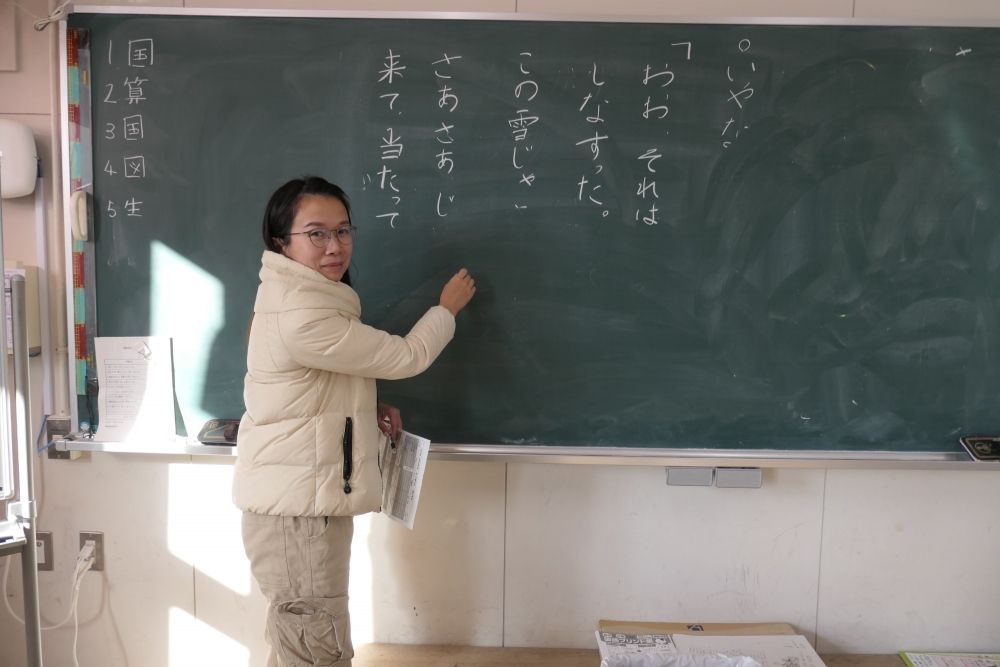 ○いやだ
「おお、それは
しなすった。
この雪じゃ
さあさあ じ
来て、当たって
1 国
2 算
3 国
4 図
5 生